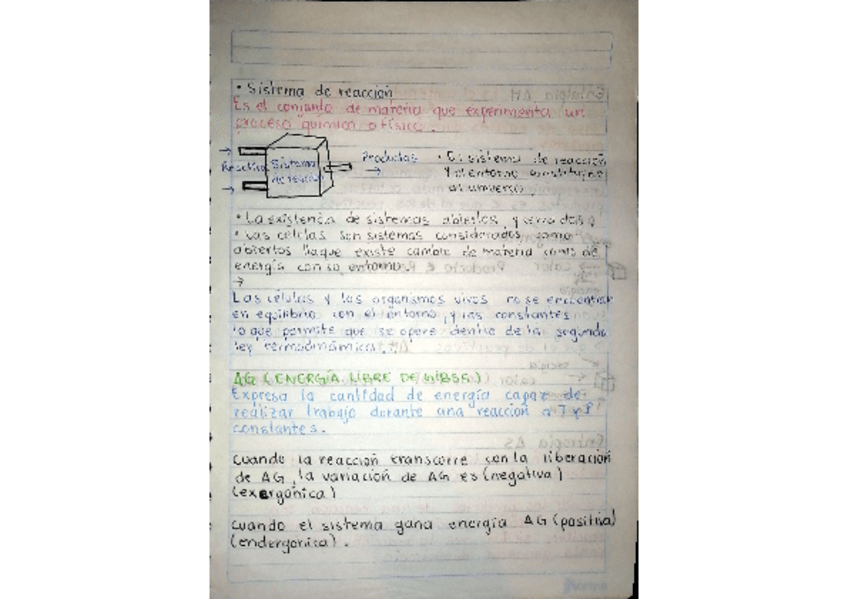 • Sistema de reacción
Es el conjunto de materia que experimenta un
proceso químico o físico.
Reactivo
Sistema
de reacción
Productos
• El sistema de reacción
y el entorno constituyen
al universo.
• La existencia de sistemas abiertos y cerrados
• Las células son sistemas considerados como
abiertos ya que existe cambio de materia como de
energía con su entorno.
→
Las células y los organismos vivos no se encuentran
en equilibrio con el entorno, y las constantes
lo que permite que se opere dentro de la segunda
ley termodinámica.
ΔG (ENERGÍA LIBRE DE GIBSS)
Expresa la cantidad de energía capaz de
realizar trabajo durante una reacción a T y P
constantes.
Cuando la reacción transcorre con la liberación
de ΔG, la variación de ΔG es (negativa)
(exergónica)
Cuando el sistema gana energía ΔG (positiva)
(endergonica).